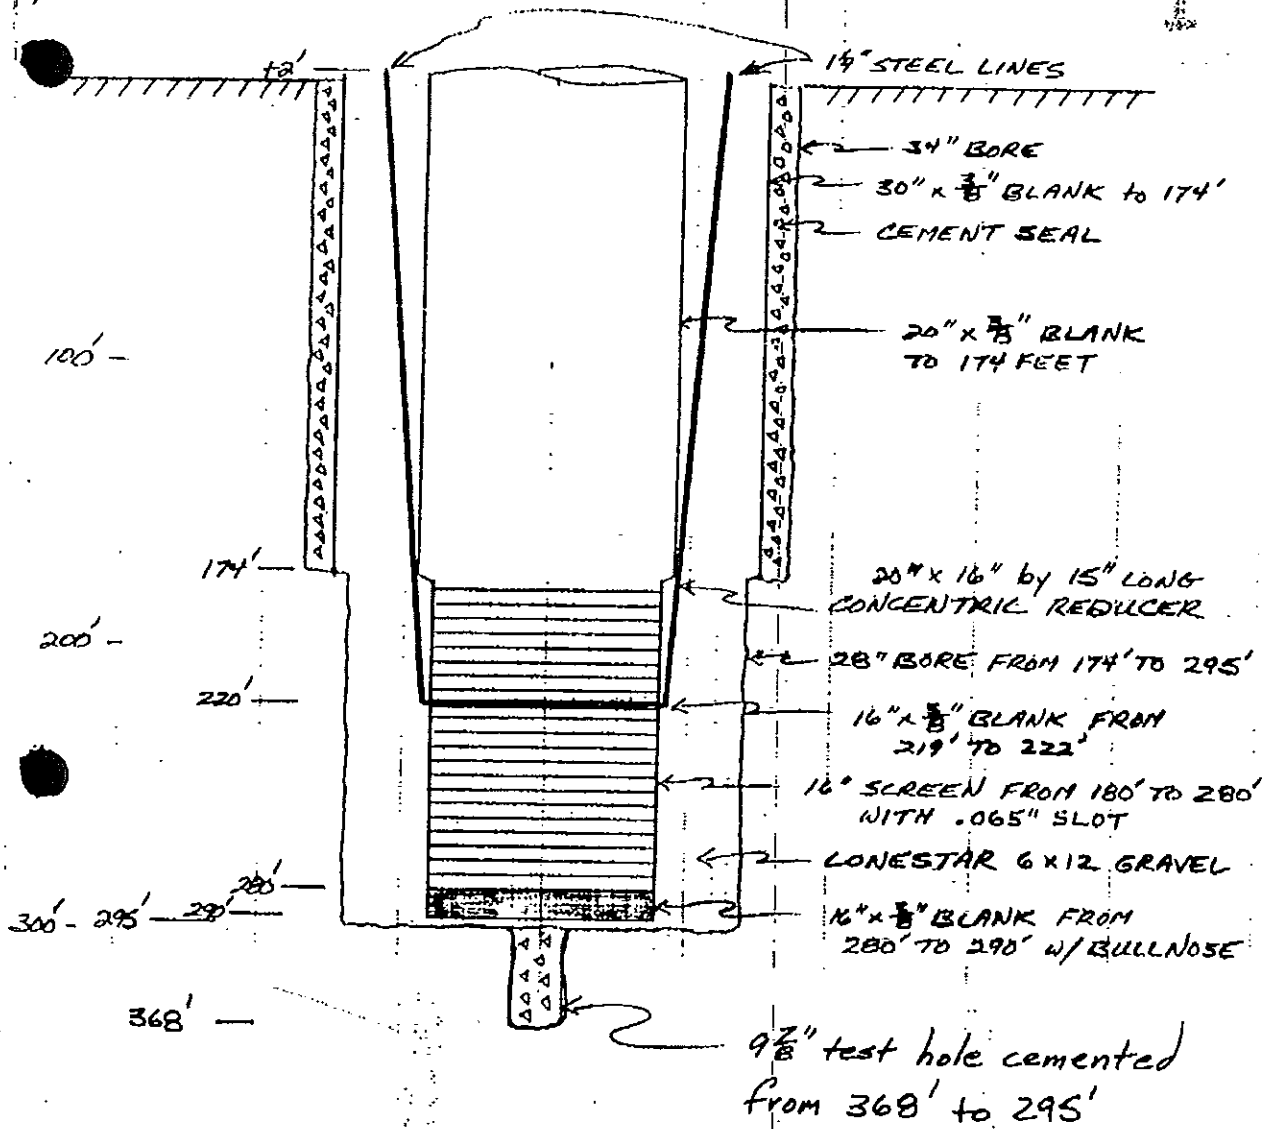 +2'
1½" STEEL LINES
34" BORE
30" x ⅜" BLANK to 174'
CEMENT SEAL
100'
20" x ⅜" BLANK
TO 174 FEET
174'
20" x 16" by 15" LONG
CONCENTRIC REDUCER
200'
28" BORE FROM 174' TO 295'
220'
16" x ⅜" BLANK FROM
219' TO 222'
16" SCREEN FROM 180' TO 280'
WITH .065" SLOT
LONESTAR 6 x 12 GRAVEL
280'
300' - 295' 290'
16" x ⅜" BLANK FROM
280' TO 290' W/ BULLNOSE
368'
9⅞" test hole cemented
from 368' to 295'